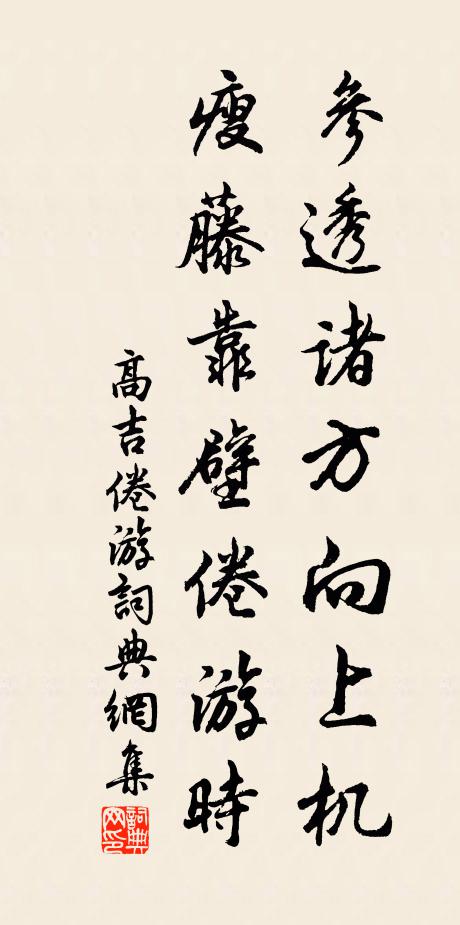 參透諸方向上机
瘦藤靠壁倦游時
高吉倦游詞典網集
詞典網印